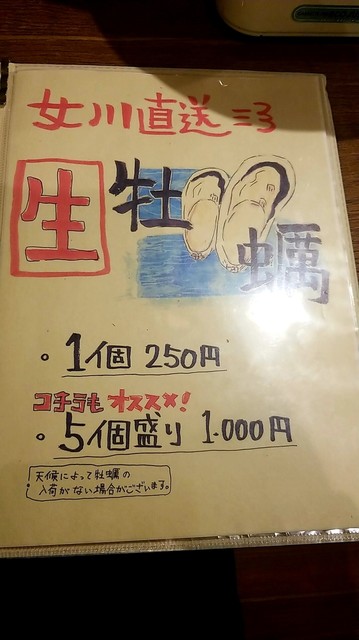 女川直送
生牡蠣
・1個 250円
コチラもオススメ!
・5個盛り 1.000円
天候によって牡蠣の
入荷がない場合がございます。